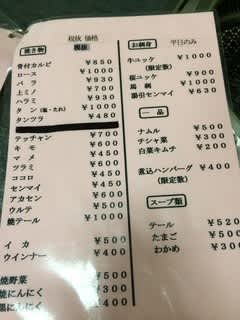 税抜 価格
税抜
焼き物
骨付カルビ ¥850
ロース ¥1000
バラ ¥930
上ミノ ¥700
ハラミ ¥930
タン(塩・たれ) ¥1000
タンツラ ¥480
テッチャン ¥700
キモ ¥600
マメ ¥600
ツラミ ¥600
ココロ ¥450
センマイ ¥450
アカセン ¥600
ウルテ ¥500
焼テール ¥1000
イカ ¥400
ウインナー ¥400
焼野菜 ¥500
焼にんにく ¥300
にんにく ¥300
お刺身 平日のみ
牛ユッケ ¥1000
(限定数)
桜ユッケ ¥900
馬刺 ¥1000
湯引センマイ ¥630
一品
ナムル ¥500
チシャ菜 ¥300
白菜キムチ ¥200
煮込ハンバーグ ¥400
(限定数)
スープ類
テール ¥520
たまご ¥500
わかめ ¥300